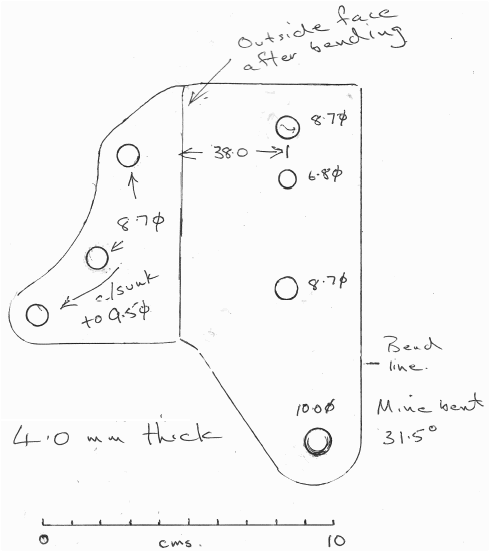 Outside face
after bending
8.7φ
38.0
6.8φ
8.7φ
c/sunk
to 9.5φ
8.7φ
Bend
line.
10.0φ
Mine bent
31.5°
4.0 mm thick
0
10
cms.